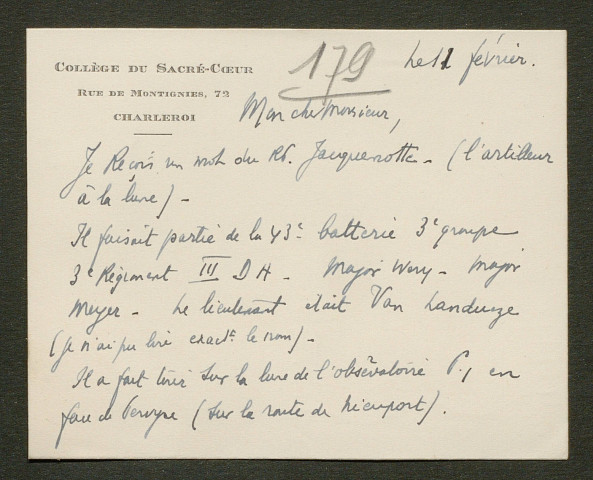 COLLÈGE DU SACRÉ-CŒUR
RUE DE MONTIGNIES, 72
CHARLEROI
179
Le 11 février.
Mon cher Monsieur,
Je Reçois un mot du Rd. Jacquemotte - (l'artilleur
à la lune) -
Il faisait partie de la 43e batterie 3e groupe
3e Régiment III DA - Major Wery - Major
Meyer - Le lieutenant était Van Landuyze
(je n'ai pu lire exactt le nom) -
Il a fait tirer sur la lune de l'observatoire P., en
face de Pervyse (sur la route de Nieuport).